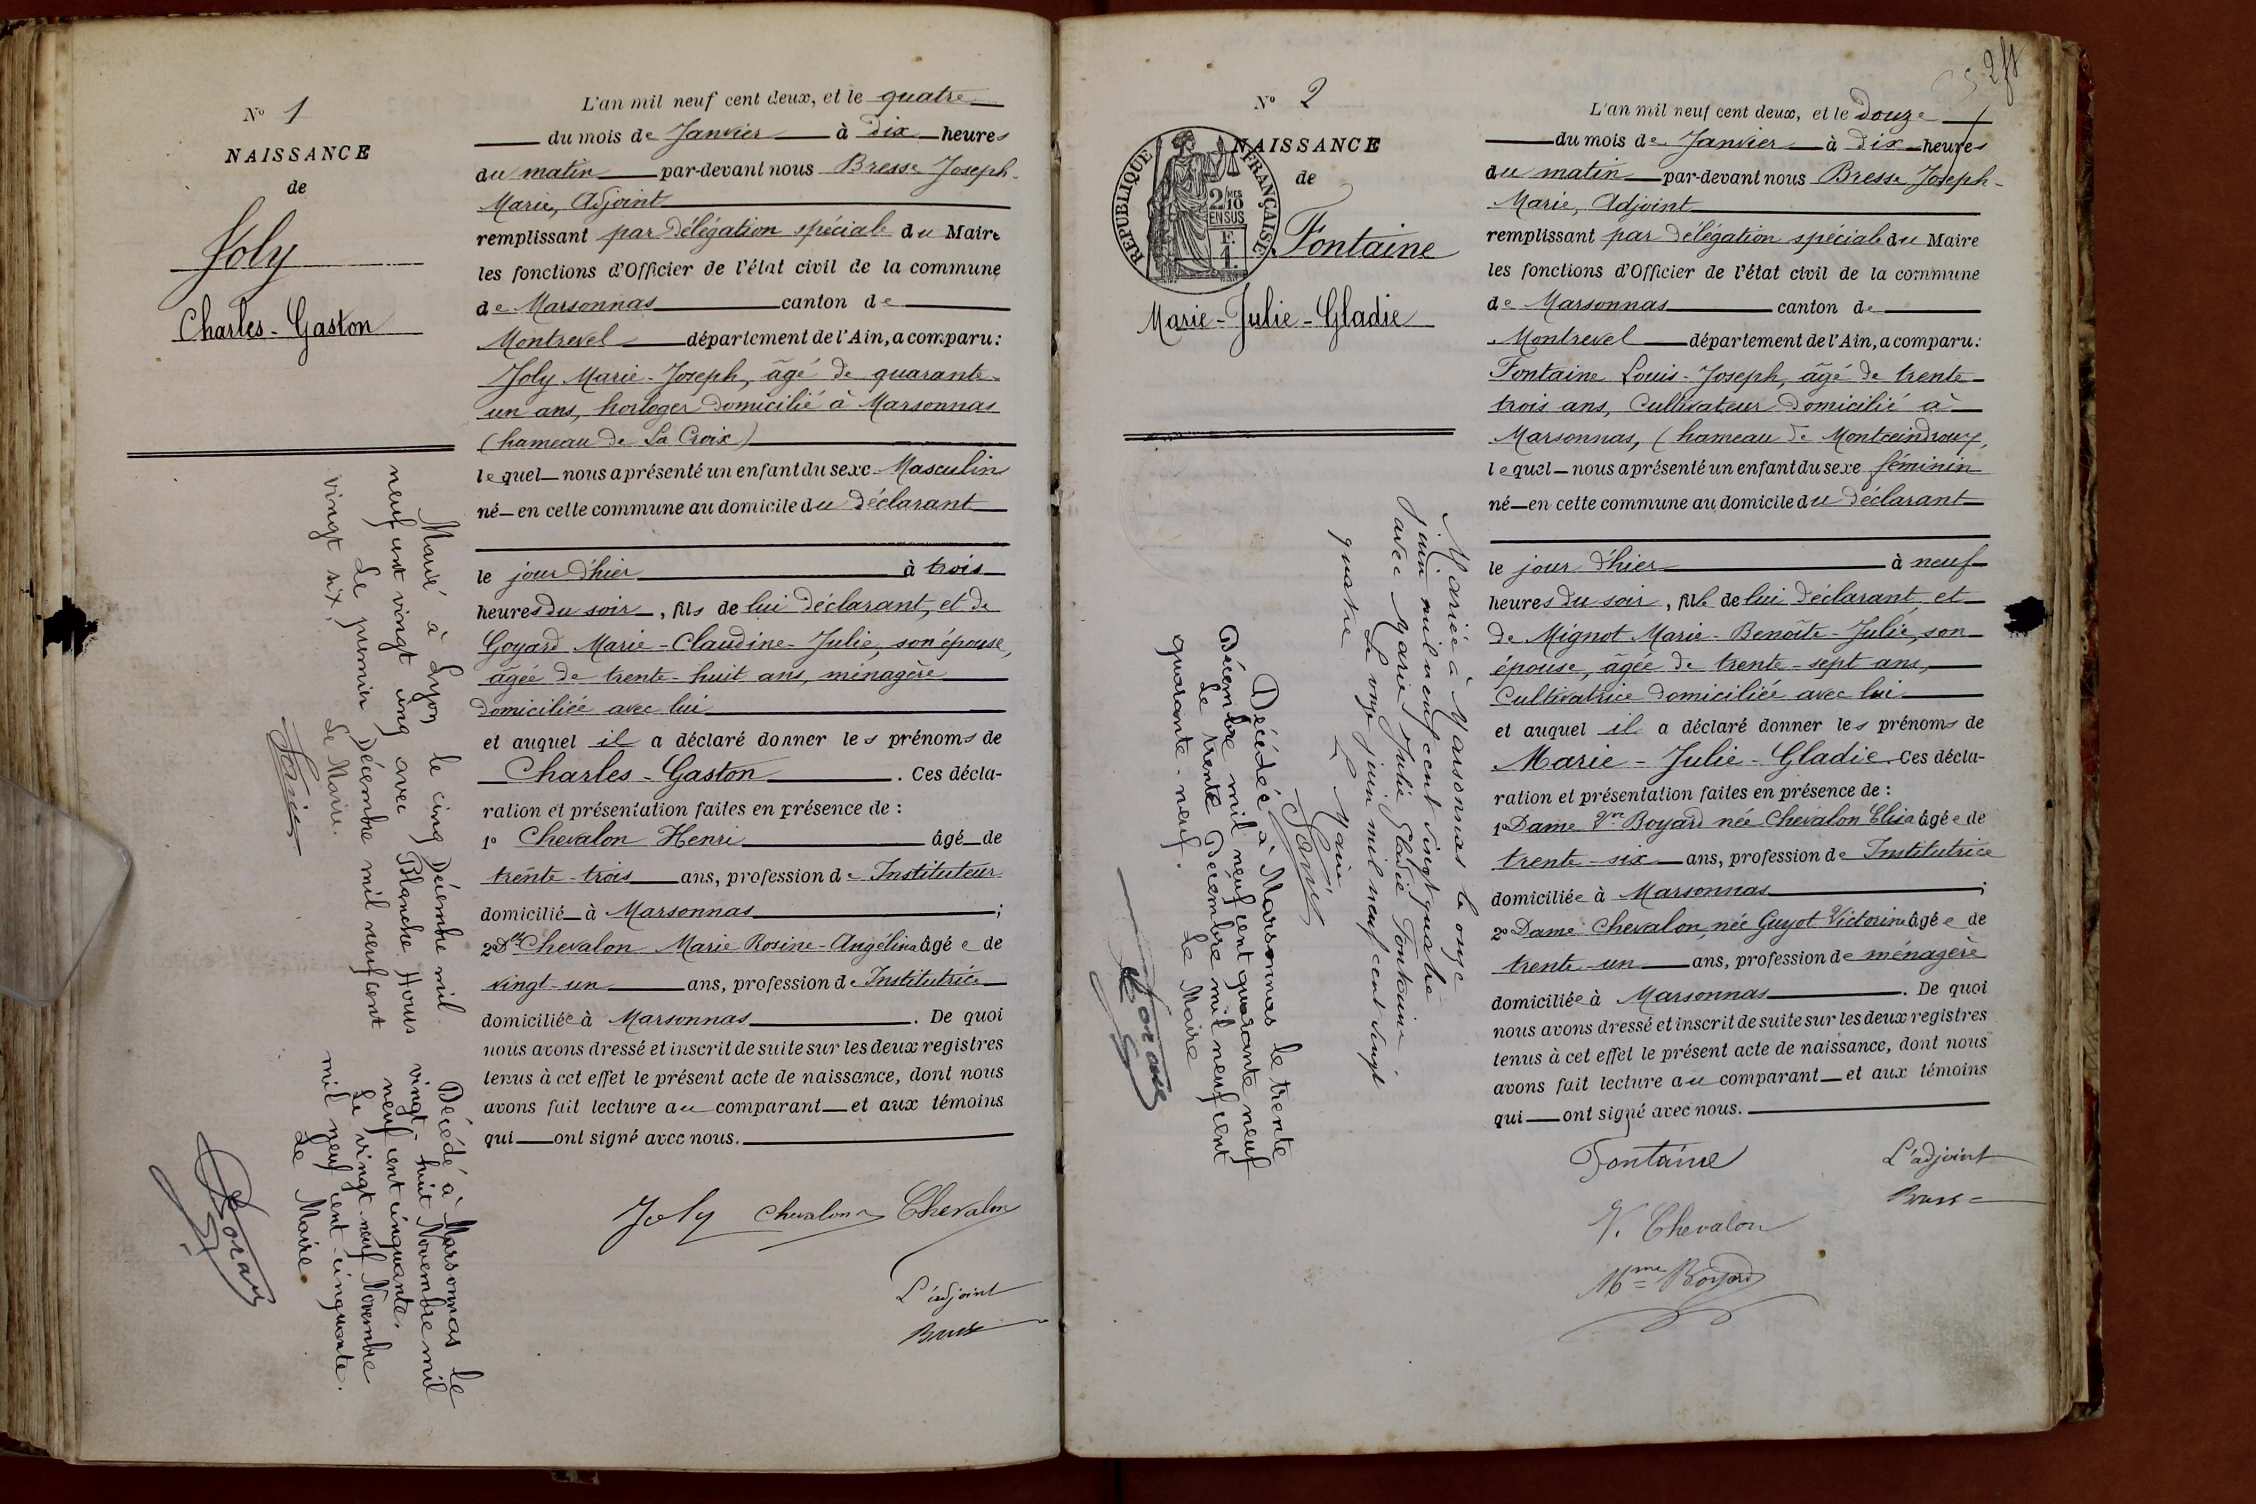 N° 1
NAISSANCE
de
Joly
Charles-Gaston
L'an mil neuf cent deux, et le quatre
du mois de Janvier à dix heures
du matin par-devant nous Bresse Joseph-
Marie, Adjoint
remplissant par délégation spéciale du Maire
les fonctions d'Officier de l'état civil de la commune
de Marsonnas canton de
Montrevel département de l'Ain, a comparu :
Joly Marie-Joseph, âgé de quarante-
un ans, horloger domicilié à Marsonnas
(hameau de La Croix)
lequel nous a présenté un enfant du sexe Masculin
né en cette commune au domicile du déclarant
le jour d'hier à trois
heures du soir, fils de lui déclarant, et de
Goyard Marie-Claudine-Julie, son épouse,
âgée de trente-huit ans, ménagère
domiciliée avec lui
et auquel il a déclaré donner les prénoms de
Charles-Gaston. Ces décla-
ration et présentation faites en présence de :
1° Chevalon Henri âgé de
trente-trois ans, profession de Instituteur
domicilié à Marsonnas ;
2° Dlle Chevalon Marie Rosine-Angélina âgée de
vingt-un ans, profession de Institutrice
domiciliée à Marsonnas. De quoi
nous avons dressé et inscrit de suite sur les deux registres
tenus à cet effet le présent acte de naissance, dont nous
avons fait lecture au comparant et aux témoins
qui ont signé avec nous.
Joly Chevalon Chevalon
L'adjoint
Bresse
Marié à Lyon le cinq Décembre mil
neuf cent vingt cinq avec Blanche Hours
Le premier Décembre mil neuf cent
vingt six.
Le Maire.
Décédé à Marsonnas le
vingt-huit Novembre mil
neuf cent cinquante.
Le vingt neuf Novembre
mil neuf cent cinquante.
Le Maire
N° 2
NAISSANCE
de
RÉPUBLIQUE FRANÇAISE
2/10 EN SUS
Fontaine
Marie-Julie-Gladie
L'an mil neuf cent deux, et le Douze
du mois de Janvier à dix heures
du matin par-devant nous Bresse Joseph-
Marie, Adjoint
remplissant par délégation spéciale du Maire
les fonctions d'Officier de l'état civil de la commune
de Marsonnas canton de
Montrevel département de l'Ain, a comparu :
Fontaine Louis-Joseph, âgé de trente-
trois ans, Cultivateur domicilié à
Marsonnas, (hameau de
lequel nous a présenté un enfant du sexe féminin
né en cette commune au domicile du déclarant
le jour d'hier à neuf
heures du soir, fille de lui déclarant et
de Mignot Marie-Benoîte-Julie, son
épouse, âgée de trente-sept ans,
Cultivatrice domiciliée avec lui
et auquel il a déclaré donner les prénoms de
Marie-Julie-Gladie. Ces décla-
ration et présentation faites en présence de :
1° Dame Boyard née Chevalon Elisa âgée de
trente-six ans, profession de Institutrice
domiciliée à Marsonnas ;
2° Dame Chevalon, née Guyot Victorine âgée de
trente-un ans, profession de ménagère
domiciliée à Marsonnas. De quoi
nous avons dressé et inscrit de suite sur les deux registres
tenus à cet effet le présent acte de naissance, dont nous
avons fait lecture au comparant et aux témoins
qui ont signé avec nous.
Fontaine
L'adjoint
Bresse
V. Chevalon
Mme Boyard
Mariée à Marsonnas le onze
juin mil neuf cent vingt quatre
avec Marie Julie Gladie Fontaine
Le onze juin mil neuf cent vingt
quatre
Le Maire
Décédée à Marsonnas le trente
Décembre mil neuf cent quarante neuf
Le trente Décembre mil neuf cent
quarante-neuf.
Le Maire